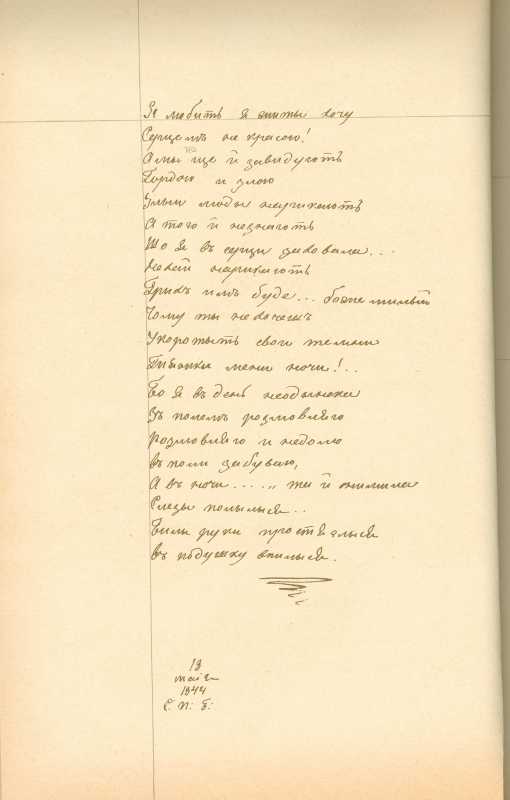 Я любить я жити хочу
Серцемъ не красою!
А мы ще й завидують
Гордою и злою
Злыи люды нарикають
А того й незнають
Що я въ серци заховала...
Нехай нарикають
Грихъ имъ буде... боже милый
Чому ты не хочешъ
Укоротыть свои темни
Тыжки мени ночи!..
Бо я въ день неодынока
Зъ полемъ розмовляю
Розмовляю и недолю
въ поли забуваю,
А въ ночи....,, та й онимила
Слезы полылыся..
Билы руки простяглыся
въ подушку впилыся.
13
маія
1844
С. П: Б: